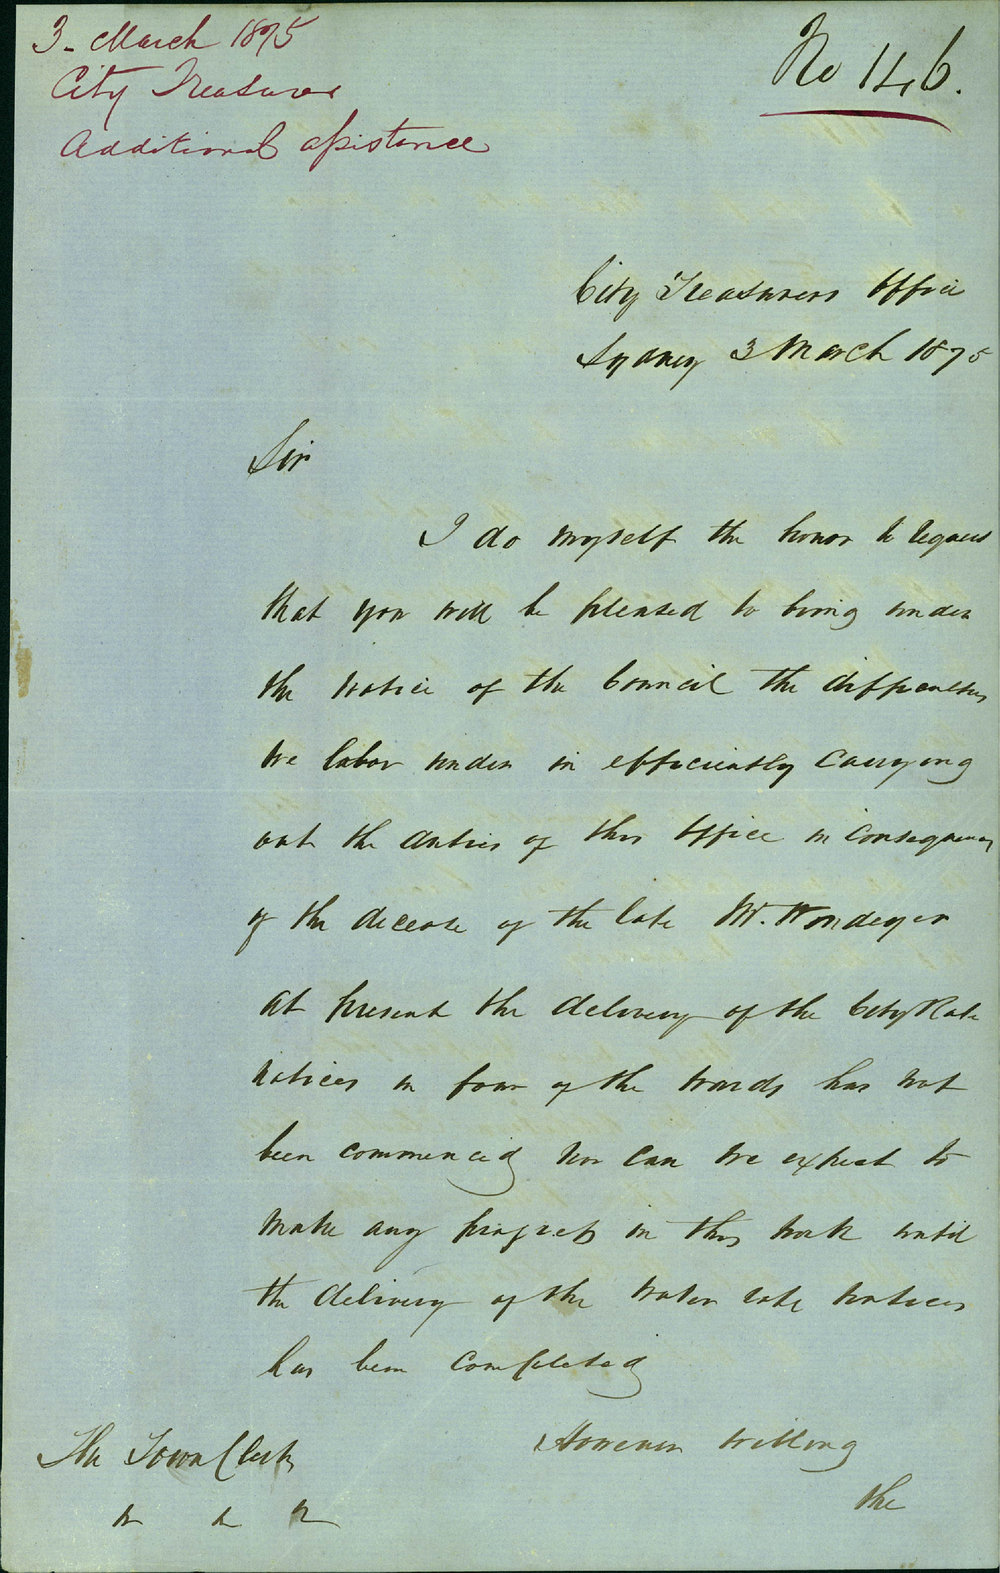 3 - March 1875
City Treasurer
Additional assistance
No 146.
City Treasurers Office
Sydney 3 March 1875
Sir
I do myself the honor to request
that you will be pleased to bring under
the notice of the Council the difficulties
we labor under in efficiently carrying
out the duties of this Office in consequence
of the decease of the late Mr.
at present the delivery of the City Rate
notices in four of the wards has not
been commenced nor can we expect to
make any progress in this work until
the delivery of the water rate notices
has been completed
However willing
the
The Town Clerk